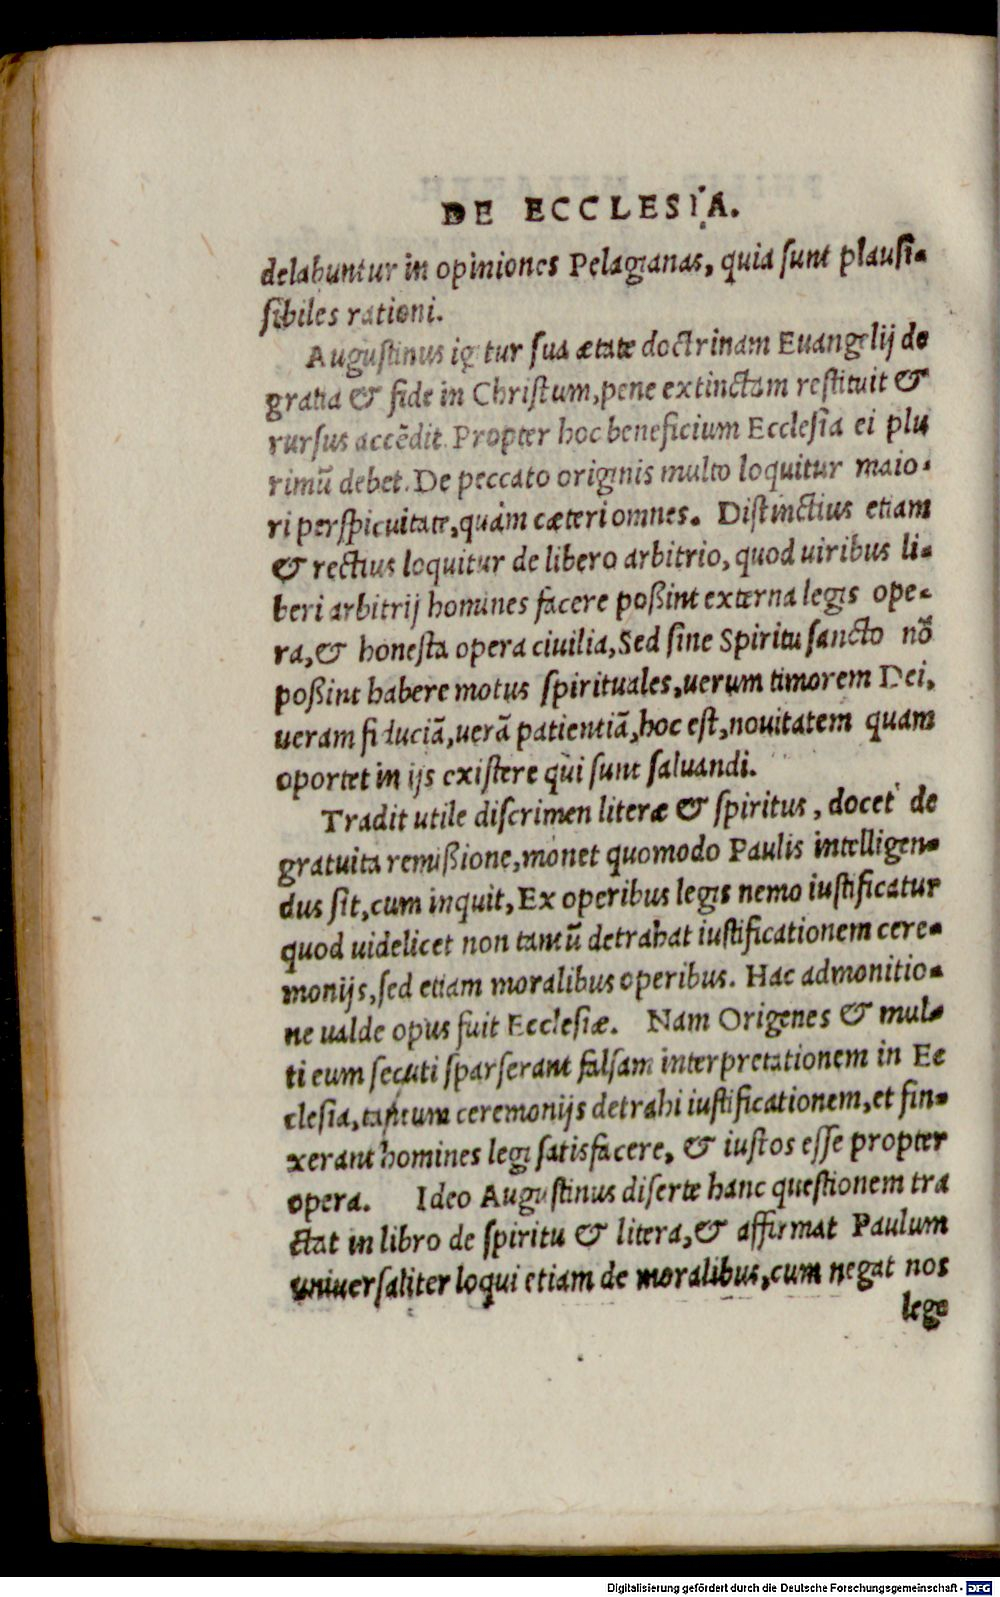 DE ECCLESIA.
delabuntur in opiniones Pelagianas, quia sunt plausi-
sibiles rationi.
Augustinus igitur sua ætate doctrinam Euangelij de
gratia & fide in Christum, pene extinctam restituit &
rursus accēdit. Propter hoc beneficium Ecclesia ei plu
rimū debet. De peccato originis multo loquitur maio-
ri perspicuitate, quàm cæteri omnes. Distinctius etiam
& rectius loquitur de libero arbitrio, quod uiribus li-
beri arbitrij homines facere poßint externa legis ope-
ra, & honesta opera ciuilia, Sed sine Spiritu sancto nō
poßint habere motus spirituales, uerum timorem Dei,
ueram fiduciā, uerā patientiā, hoc est, nouitatem quam
oportet in ijs existere qui sunt saluandi.
Tradit utile discrimen literæ & spiritus, docet de
gratuita remißione, monet quomodo Paulis intelligen-
dus sit, cum inquit, Ex operibus legis nemo iustificatur
quod uidelicet non tantū detrahat iustificationem cere-
monijs, sed etiam moralibus operibus. Hac admonitio-
ne ualde opus fuit Ecclesiæ. Nam Origenes & mul-
ti eum secuti sparserant falsam interpretationem in Ec
clesia, tantum ceremonijs detrahi iustificationem, et fin-
xerant homines legi satisfacere, & iustos esse propter
opera. Ideo Augustinus diserte hanc questionem tra
ctat in libro de spiritu & litera, & affirmat Paulum
uniuersaliter loqui etiam de moralibus, cum negat nos
lege
Digitalisierung gefördert durch die Deutsche Forschungsgemeinschaft - DFG